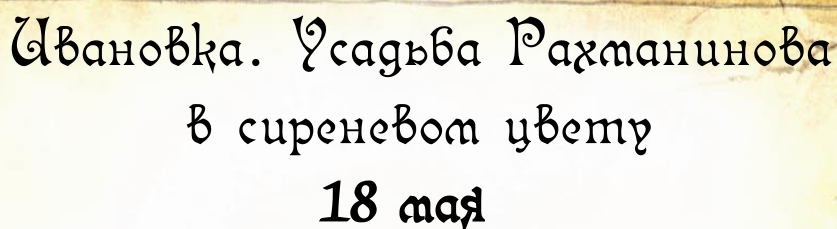 Ивановка. Усадьба Рахманинова
в сиреневом цвету
18 мая